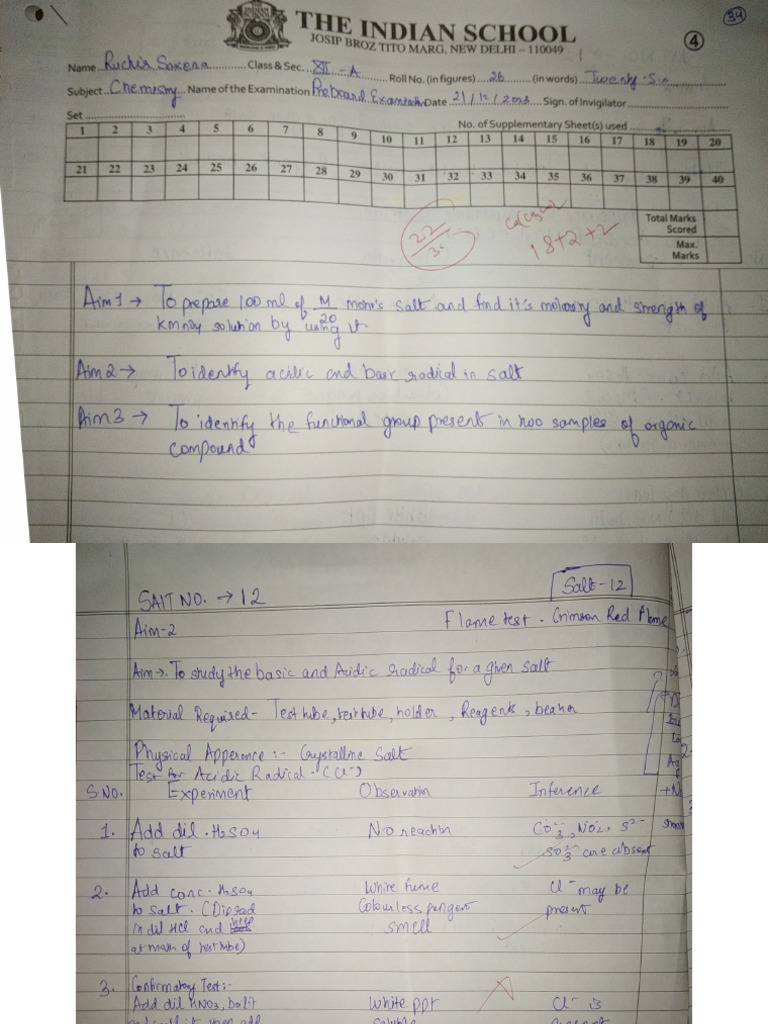 34
THE INDIAN SCHOOL
JOSIP BROZ TITO MARG, NEW DELHI – 110049
4
Name Ruchir Saxena Class & Sec. XII - A Roll No. (in figures) 26 (in words) Twenty-Six
Subject Chemistry Name of the Examination Preboard Date 21/12/2023 Sign. of Invigilator
Set
No. of Supplementary Sheet(s) used
1 2 3 4 5 6 7 8 9 10 11 12 13 14 15 16 17 18 19 20
21 22 23 24 25 26 27 28 29 30 31 32 33 34 35 36 37 38 39 40
22/30
18+2+2
Total Marks Scored
Max. Marks
Aim 1 → To prepare 100 ml of M/20 mohr's salt and find it's molarity and strength of
kmno4 solution by using it
Aim 2 → To identify acidic and basic radical in salt
Aim 3 → To identify the functional group present in two samples of organic
compound
SALT NO. → 12
Salt-12
Aim-2
Flame test - Crimson Red Flame
Aim → To study the basic and Acidic radical for a given salt
Material Required - Test tube, test tube, holder, Reagents, beaker
Physical Apperance :- Crystalline Salt
Test for Acidic Radical - (Cl-)
S.NO. Experiment Observation Inference
1. Add dil. H2SO4 No reaction CO3 2-, NO2-, S2-
to salt SO3 2- are absent
2. Add conc. H2SO4 White fume Cl- may be
to salt. (Dip rod Colourless pungent present
in dil HCl and smell
at mouth of test tube)
3. Confirmatory Test:-
Add dil HNO3, boil it White ppt Cl- is